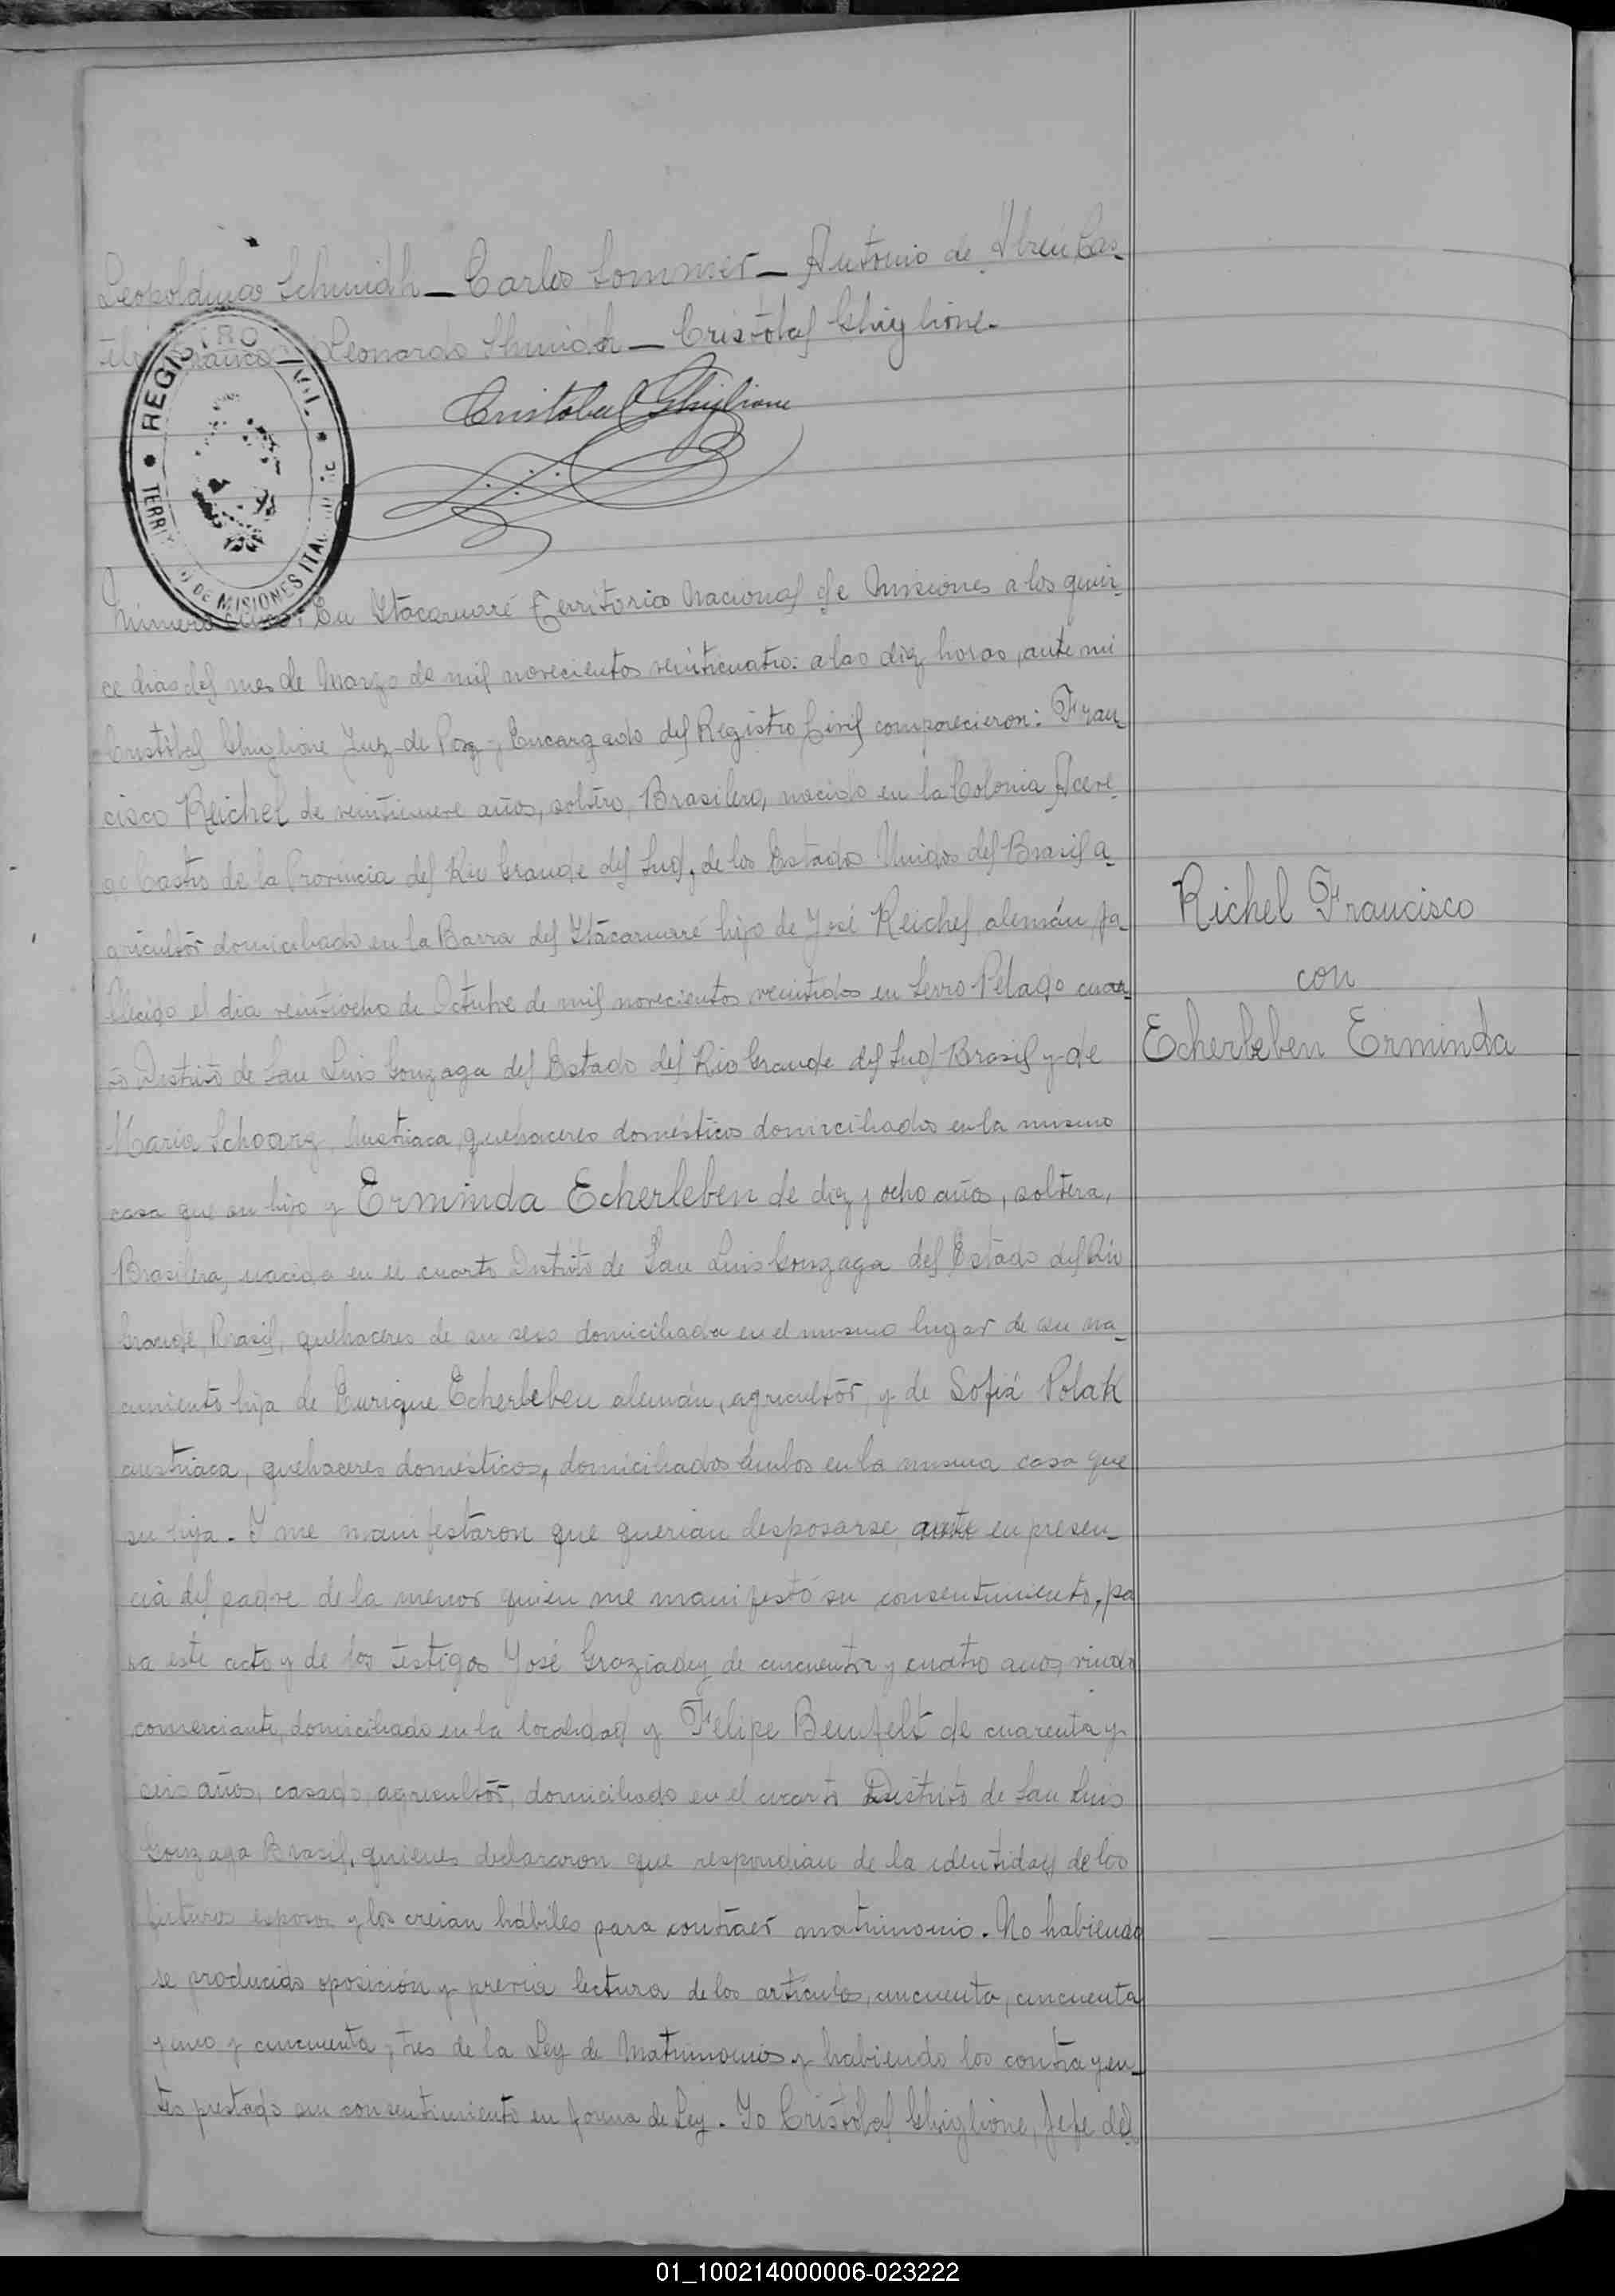 Leopoldina Schmidh — Carlos Sommer — Antonio de Abreu Cas-
Leonardo Shmidh — Cristóbal Ghiglione.
Cristobal Ghiglione
REGISTRO CIVIL
DE MISIONES
Número En Itacaruaré Territorio Nacional de Misiones a los quin-
ce dias del mes de Marzo de mil novecientos veinticuatro: a las diez horas, ante mi
Cristóbal Ghiglione Juez de Paz y Encargado del Registro Civil comparecieron: Fran-
cisco Reichel de veintinueve años, soltero, Brasilero, nacido en la Colonia Aceve-
do Castro de la Provincia del Rio Grande del Sud, de los Estados Unidos del Brasil a-
gricultor domiciliado en la Barra del Itacaruaré hijo de José Reichel alemán, fa-
llecido el dia veintiocho de Octubre de mil novecientos veintidos en Serro Pelado cuar-
to Distrito de San Luis Gonzaga del Estado del Rio Grande del Sud Brasil y de
Maria Schoarz, Austriaca, quehaceres domésticos domiciliados en la misma
casa que su hijo y Erminda Echerleben de diez y ocho años, soltera,
Brasilera, nacida en el cuarto Distrito de San Luis Gonzaga del Estado del Rio
Grande, Brasil, quehaceres de su sexo domiciliada en el mismo lugar de su na-
cimiento hija de Enrique Echerleben alemán, agricultor, y de Sofiá Polak
austriaca, quehaceres domésticos, domiciliados ambos en la misma casa que
su hija. Y me manifestaron que querian desposarse, en presen-
cia del padre de la menor quien me manifestó su consentimiento, pa
ra este acto y de los testigos José Graziadey de cincuenta y cuatro anos, viudo
comerciante, domiciliado en la localidad y Felipe Benfelt de cuarenta y
seis años, casado, agricultor, domiciliado en el cuarto Distrito de San Luis
Gonzaga Brasil, quienes declararon que respondian de la identidad de los
futuros esposos y los creian hábiles para contraer matrimonio. No habiendo
se producido oposición y previa lectura de los articulos, cincuenta, cincuenta
y uno y cincuenta y tres de la Ley de Matrimonio y habiendo los contrayen-
tes prestado su consentimiento en forma de Ley. Yo Cristóbal Ghiglione, Jefe del
Richel Francisco
con
Echerleben Erminda
01_100214000006-023222